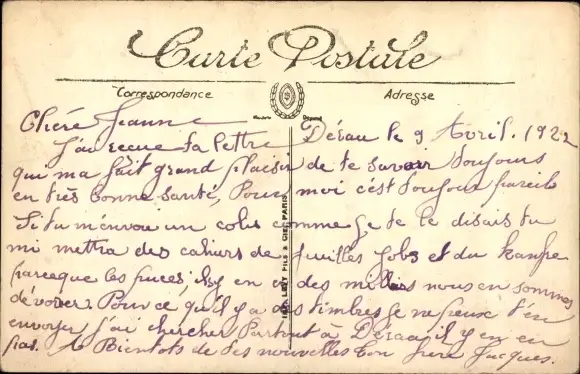 Carte Postale
Correspondance
Adresse
Chère Jeanne
Déraa le 9 Avril. 1922
J'ai recue ta lettre
qui ma fait grand plaisir de te savoir toujours
en très bonne santé, Pour moi c'est toujours pareils
Si tu m'envou un colis comme je te le disais tu
mi mettra des cahiers de feuilles Jobs et du kanfre
parceque les puces; ils y en a des milliers nous en sommes
dévorer. Pour ce qu'il y a des timbres je ne peux t'en
envoyer j'ai chercher Partout à Déraa il y en en
pas. Bientots de tes nouvelles ton frère Jacques.
LEVY FILS & CIE, PARIS